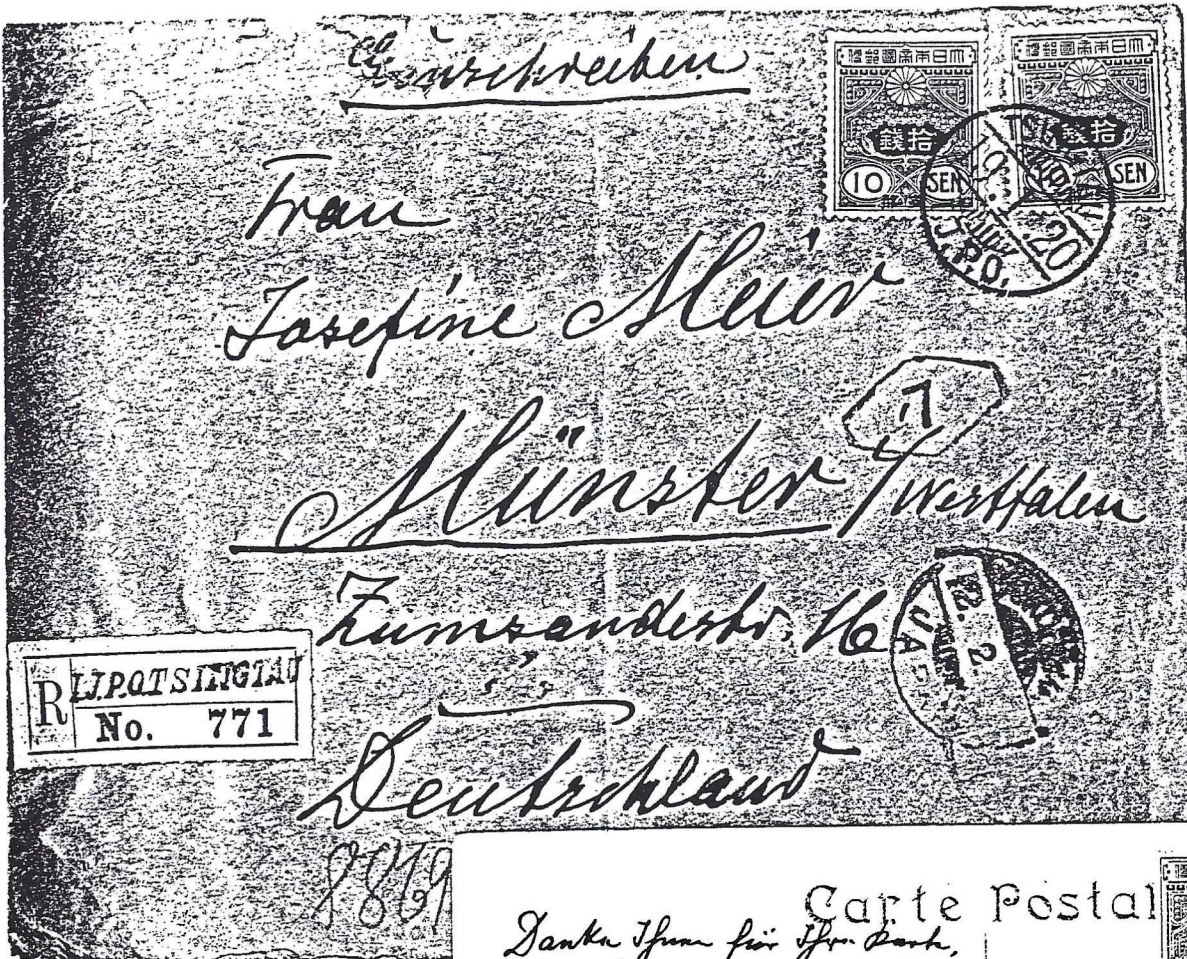 Einschreiben
大日本帝國郵便
拾錢
10 SEN
大日本帝國郵便
拾錢
10 SEN
TSINGTAU
.20
I.J.P.O.
Frau
Josefine Meier
7
Münster / Westfalen
Zumsandestr. 16
12. 2
JAPAN
R I.J.P.O. TSINGTAU
No. 771
Deutschland
Carte Postal
Danke Ihnen für Ihre Karte,